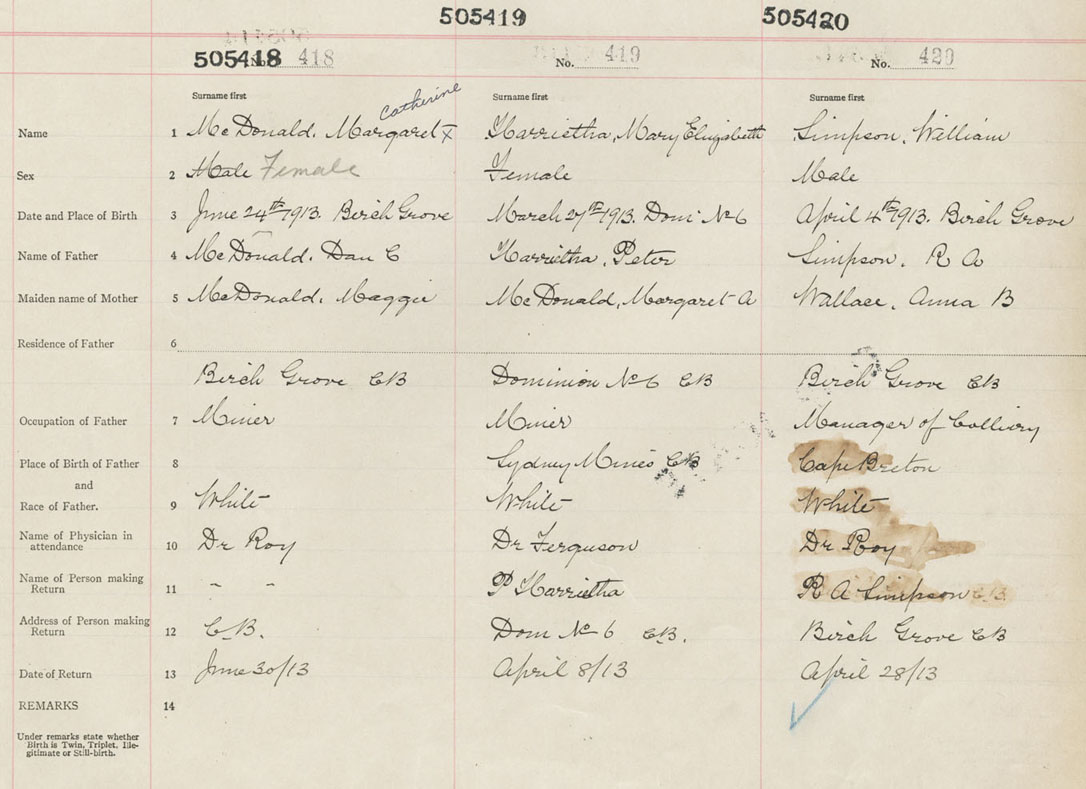 505419 505420
505418 No. 418 No. 419 No. 420
Surname first Surname first Surname first
Catherine
Name 1 McDonald. Margaret x Harrietha, Mary Elizabeth Simpson, William
Sex 2 Male Female Female Male
Date and Place of Birth 3 June 24th 1913. Birch Grove March 27th 1913. Dom: No 6 April 4th 1913. Birch Grove
Name of Father 4 McDonald. Dan C Harrietha, Peter Simpson. R A
Maiden name of Mother 5 McDonald, Maggie McDonald, Margaret A Wallace, Anna B
Residence of Father 6
Birch Grove CB Dominion No 6 CB Birch Grove CB
Occupation of Father 7 Miner Miner Manager of Colliery
Place of Birth of Father 8 Sydney Mines CB Cape Breton
and
Race of Father. 9 White White White
Name of Physician in
attendance 10 Dr Roy Dr Ferguson Dr Roy
Name of Person making
Return 11 " " P Harrietha R A Simpson CB
Address of Person making
Return 12 C.B. Dom No 6 CB. Birch Grove CB
Date of Return 13 June 30/13 April 8/13 April 28/13
REMARKS 14
Under remarks state whether
Birth is Twin, Triplet, Ille-
gitimate or Still-birth.